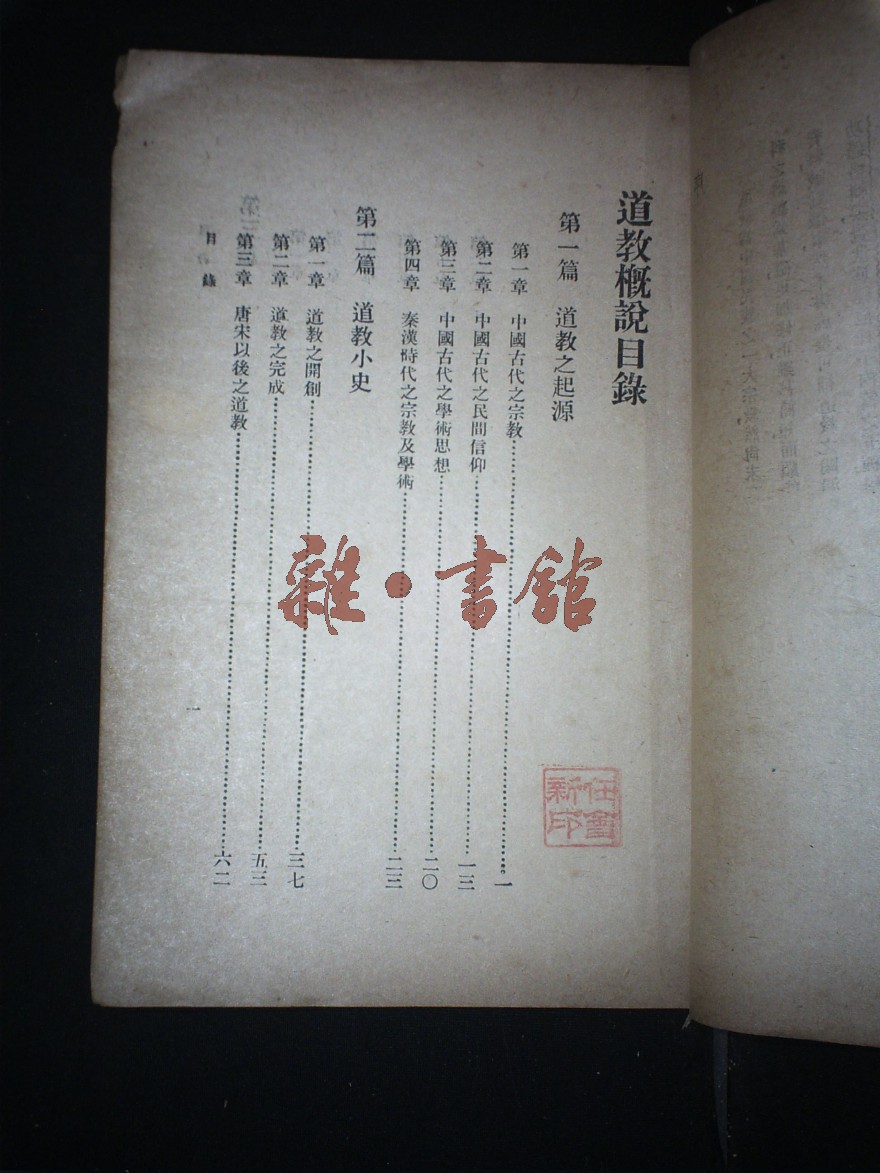 道教概說目錄
第一篇 道教之起源
第一章 中國古代之宗教……一
第二章 中國古代之民間信仰……一三
第三章 中國古代之學術思想……二〇
第四章 秦漢時代之宗教及學術……二三
第二篇 道教小史
第一章 道教之開創……三七
第二章 道教之完成……五三
第三章 唐宋以後之道教……六二
目錄
一
任會
新印
雜·書館